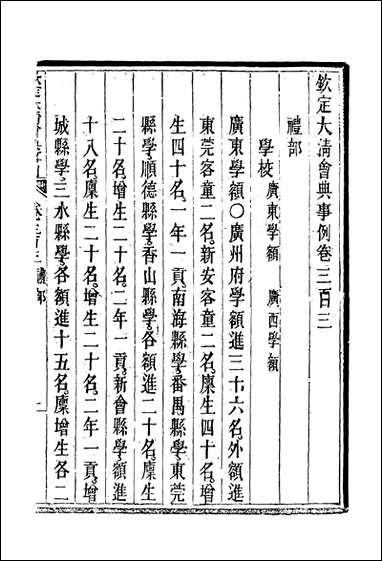 欽定大清會典事例卷三百三
禮部
學校 廣東學額 廣西學額
廣東學額〇廣州府學額進三十六名外額進
東莞客童二名新安客童二名廩生四十名增
生四十名一年一貢南海縣學番禺縣學東莞
縣學順德縣學香山縣學各額進二十名廩生
二十名增生二十名二年一貢新會縣學額進
十八名廩生二十名增生二十名二年一貢增
城縣學三水縣學各額進十五名廩增生各二